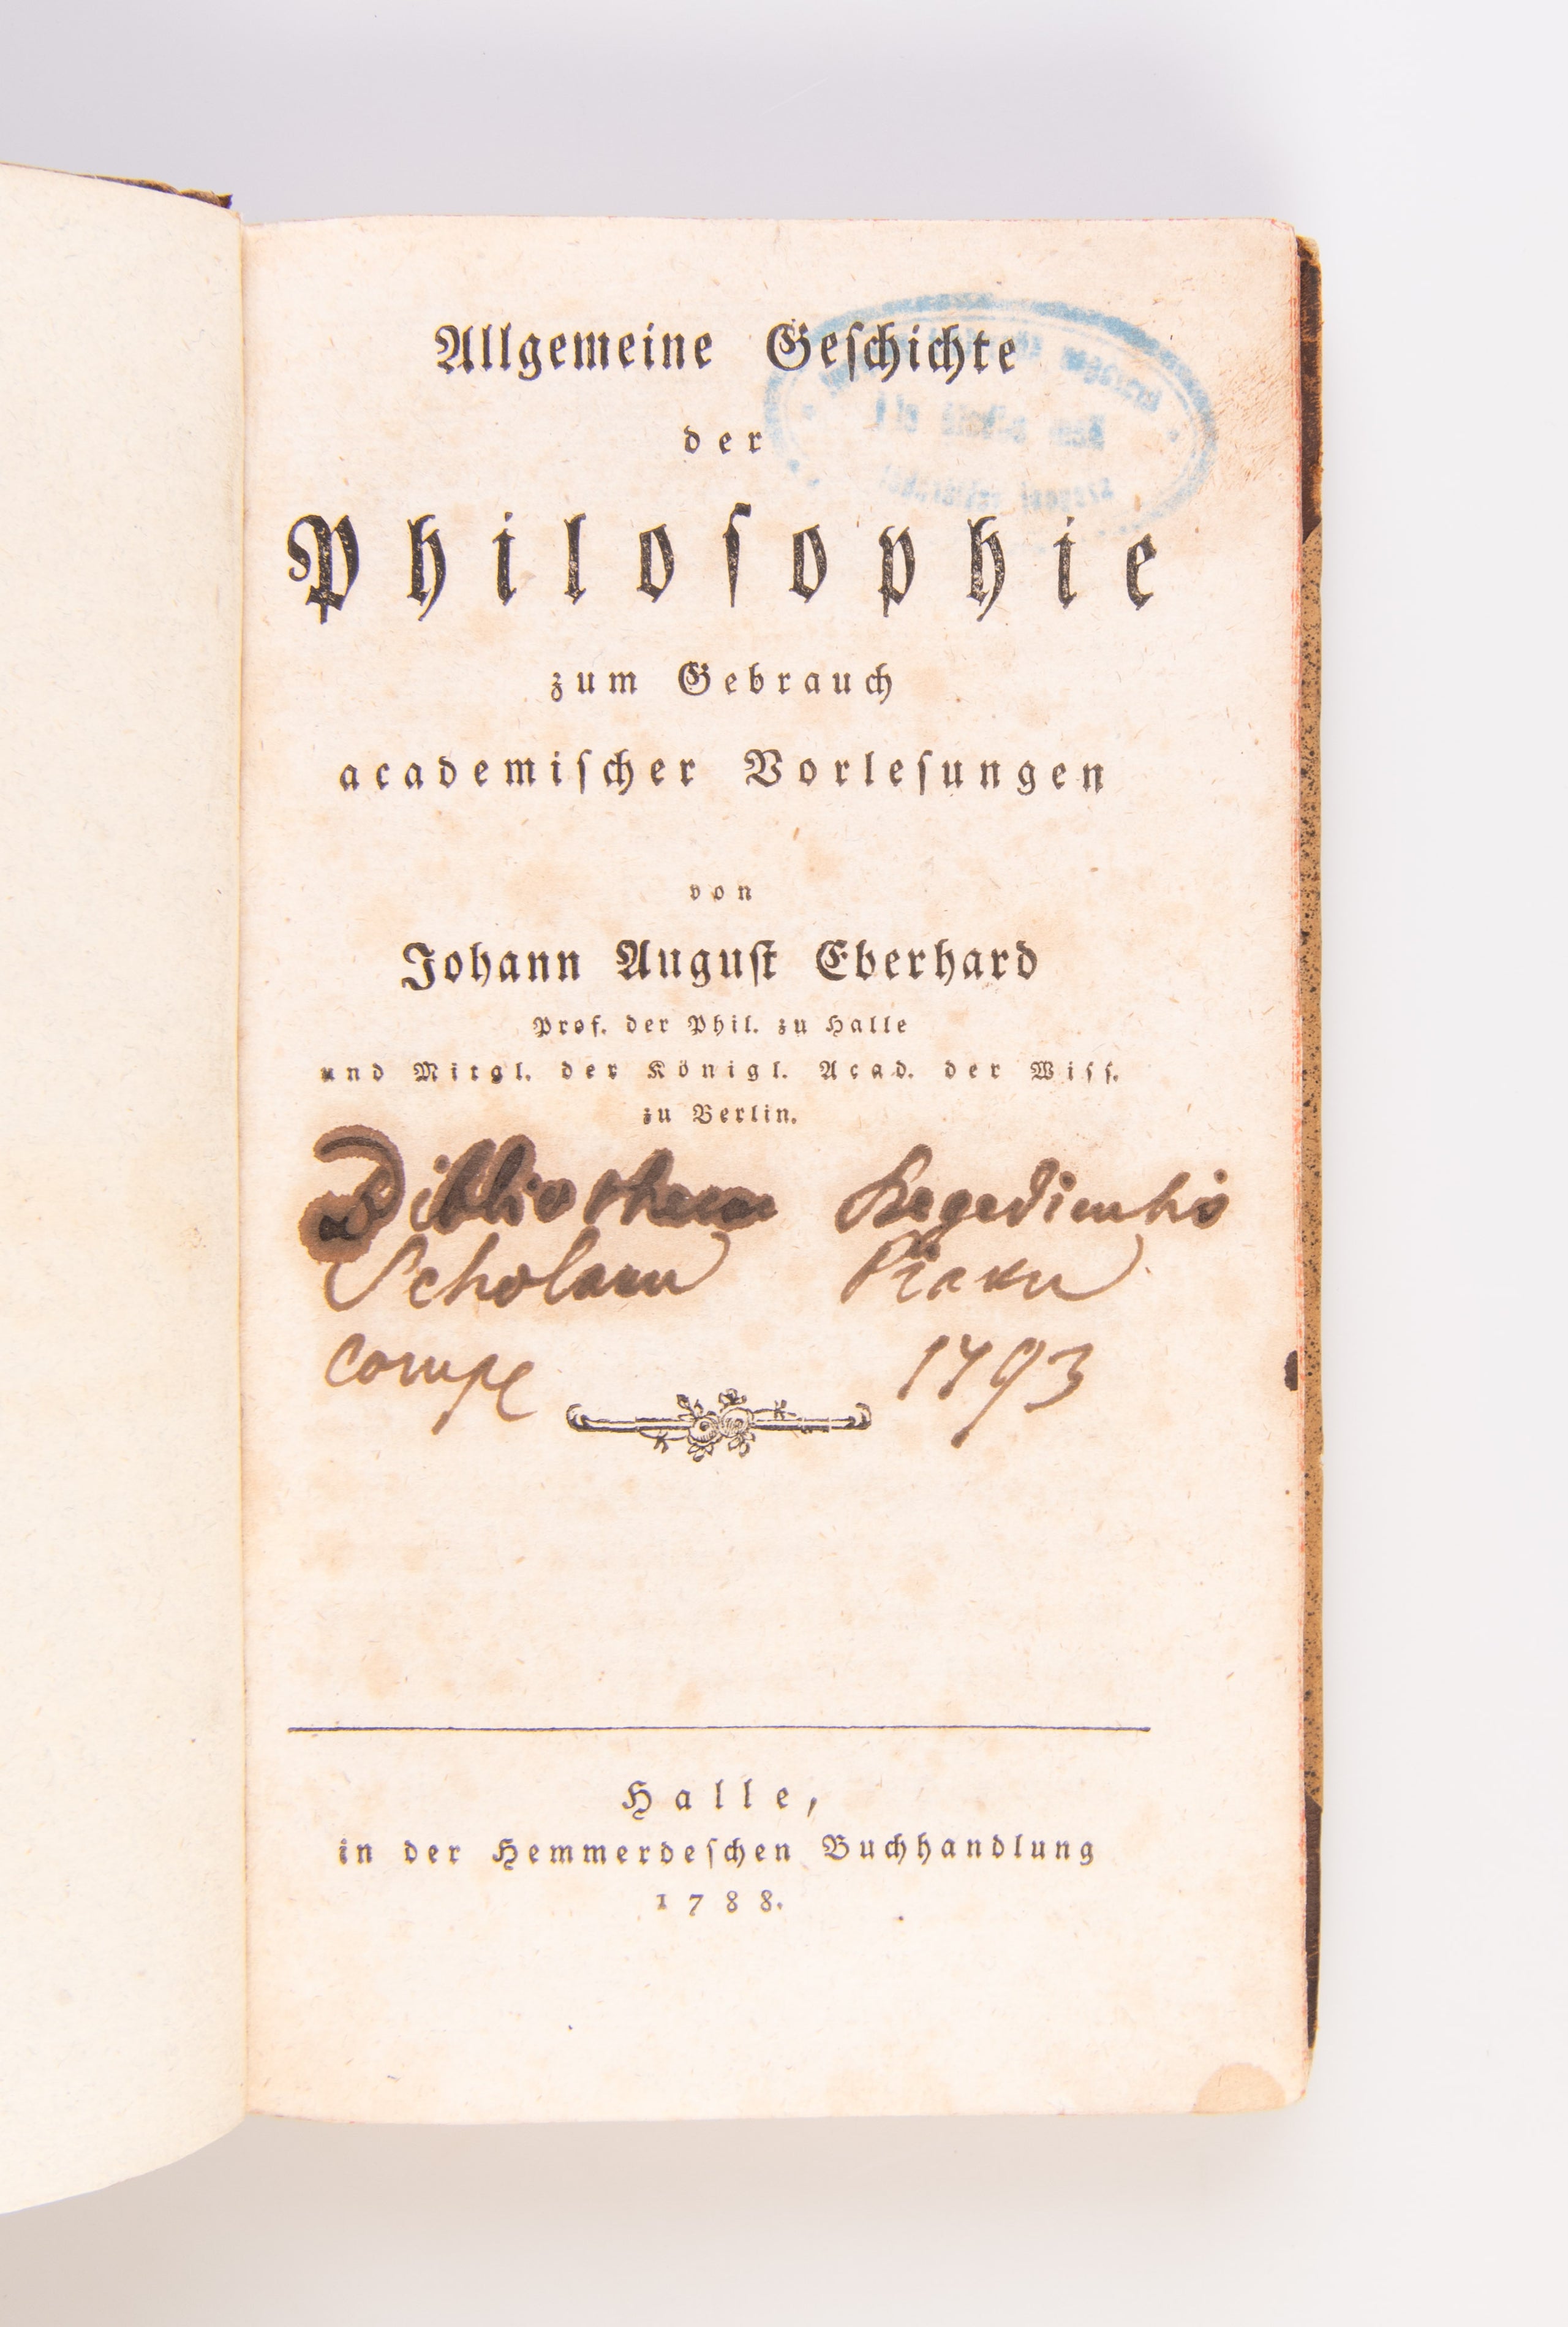 Allgemeine Geschichte
der
Philosophie
zum Gebrauch
academischer Vorlesungen
von
Johann August Eberhard
Prof. der Phil. zu Halle
und Mitgl. der Königl. Acad. der Wiss.
zu Berlin.
Scholarum Piarum
1793
Halle,
in der Hemmerdeschen Buchhandlung
1788.